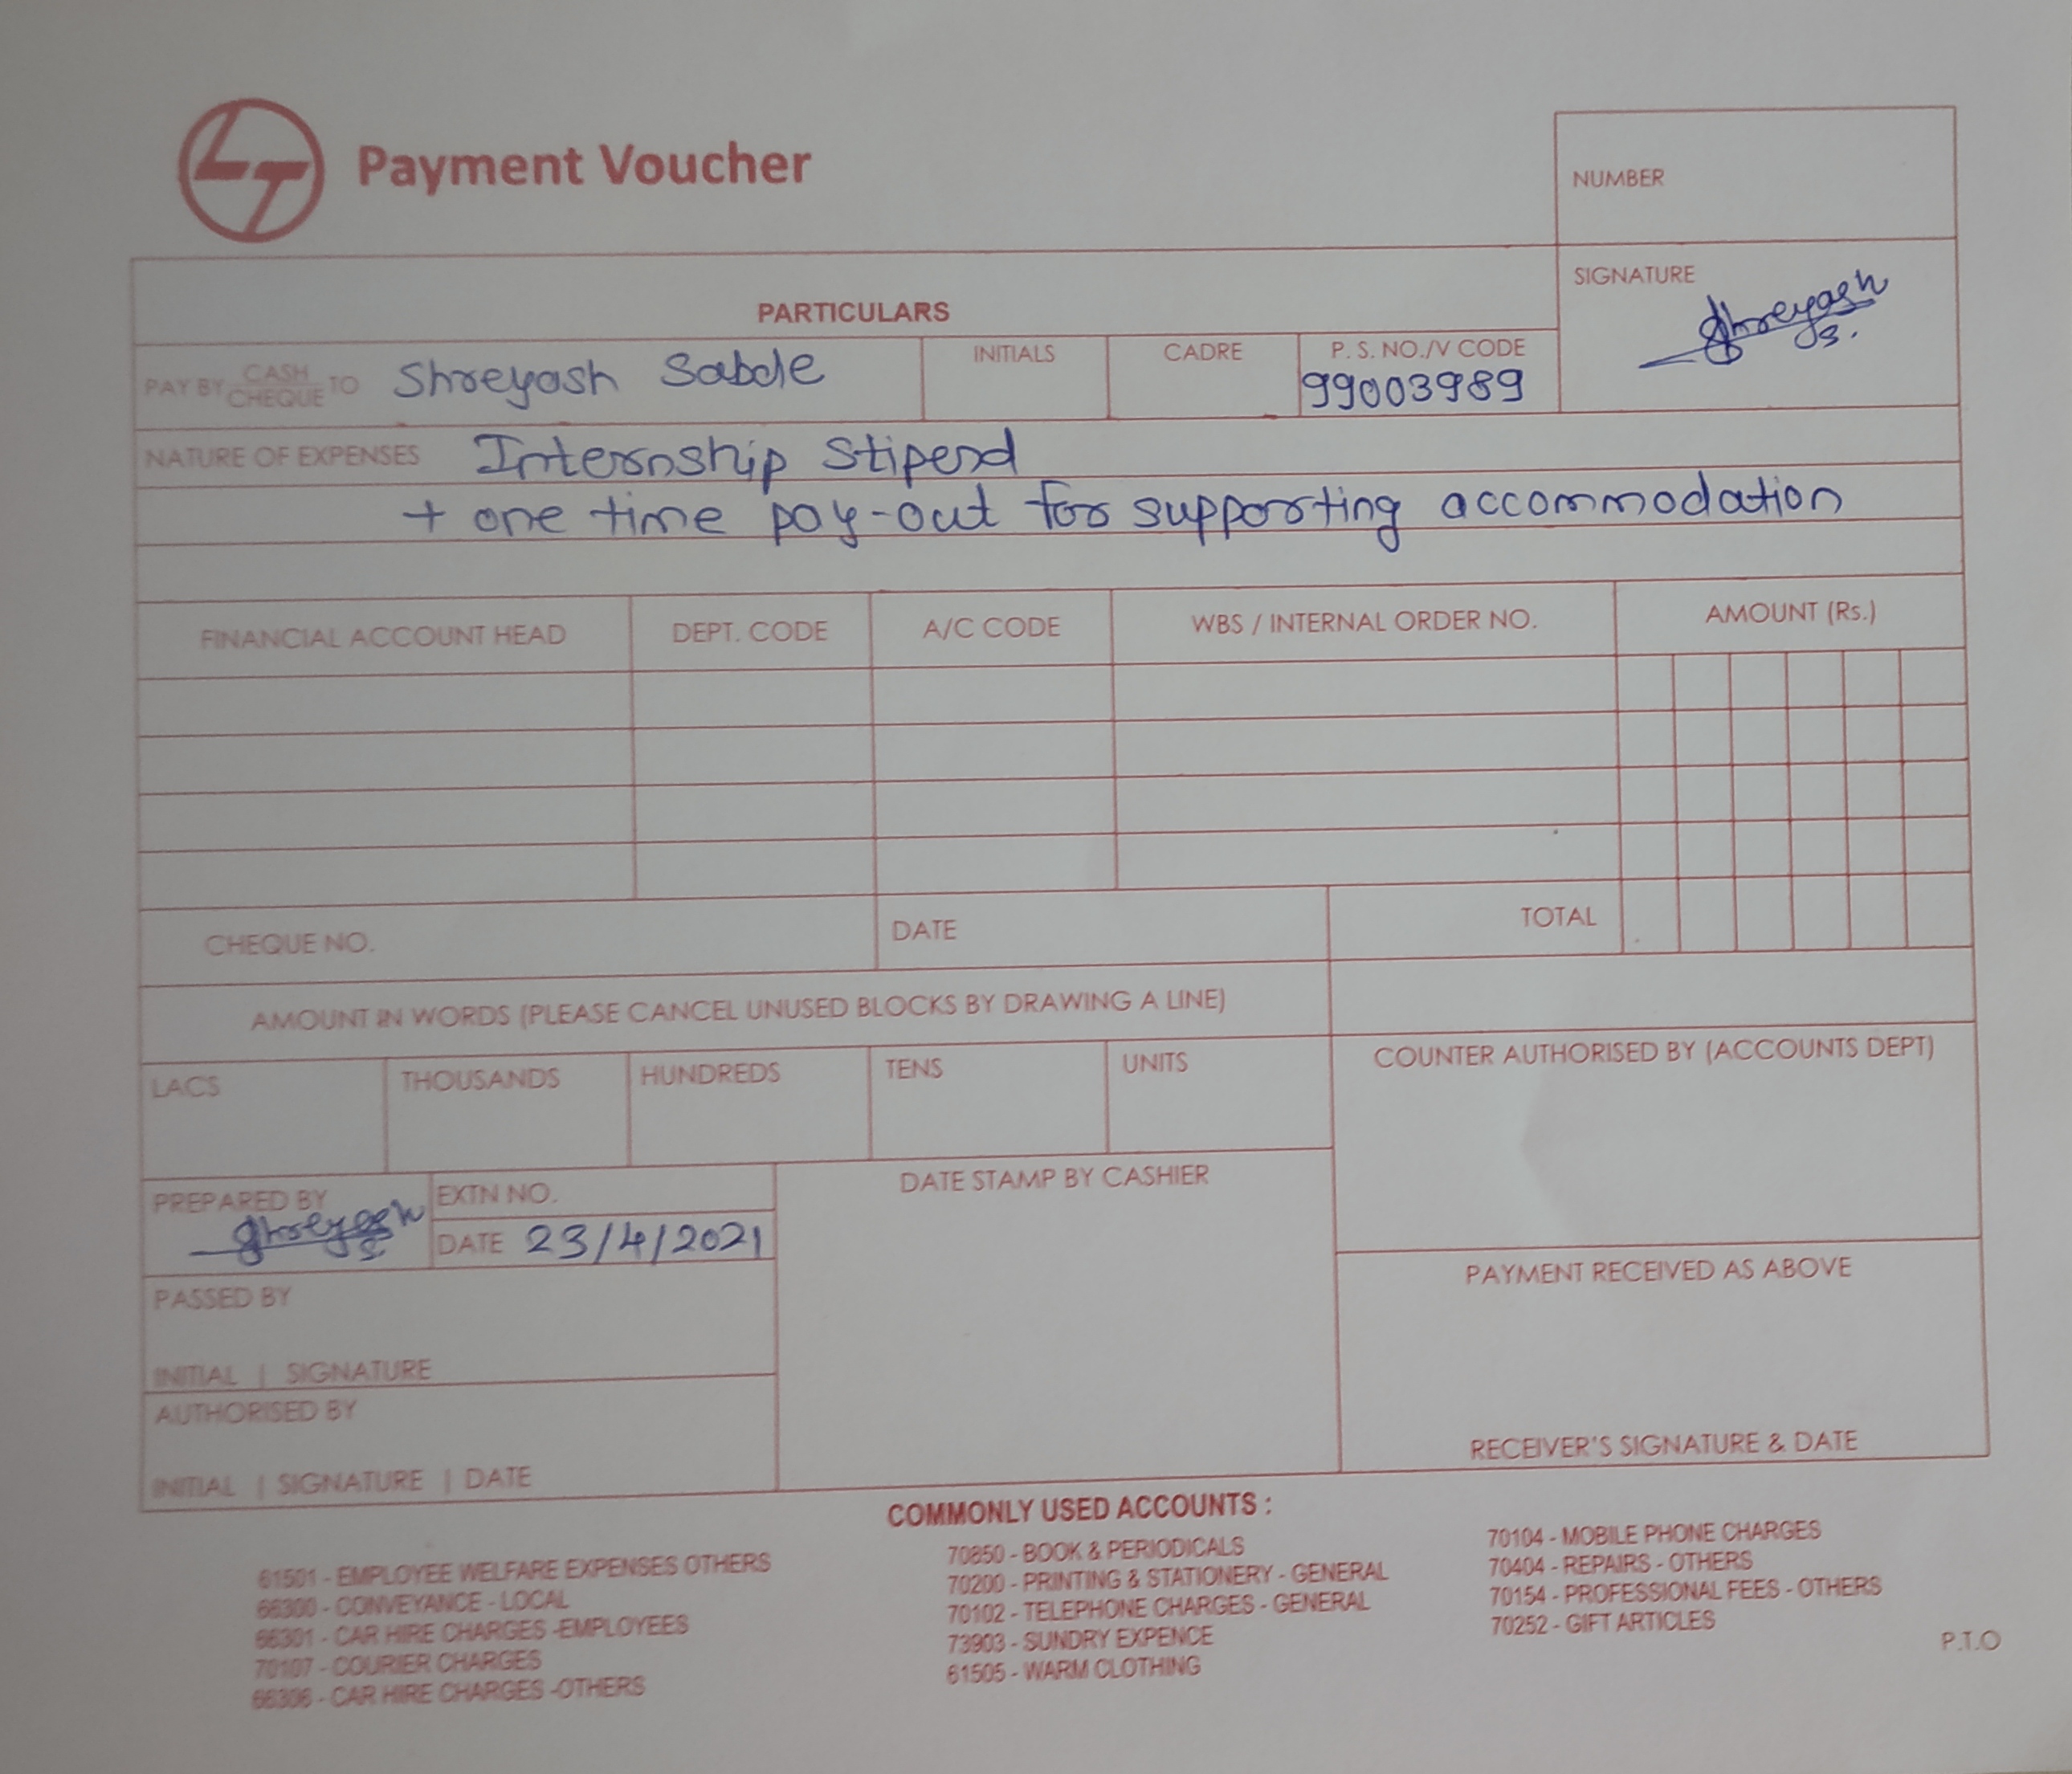 LT Payment Voucher
NUMBER
SIGNATURE
Shreyash
S.
PARTICULARS
PAY BY CASH CHEQUE TO Shreyash Sabde
INITIALS
CADRE
P. S. NO./V CODE
99003989
NATURE OF EXPENSES Internship Stipend
+ one time pay-out for supporting accommodation
FINANCIAL ACCOUNT HEAD DEPT. CODE A/C CODE WBS / INTERNAL ORDER NO. AMOUNT (Rs.)
CHEQUE NO. DATE TOTAL
AMOUNT IN WORDS (PLEASE CANCEL UNUSED BLOCKS BY DRAWING A LINE)
LACS THOUSANDS HUNDREDS TENS UNITS
COUNTER AUTHORISED BY (ACCOUNTS DEPT)
PREPARED BY
Shreyash
S
EXTN NO.
DATE 23/4/2021
DATE STAMP BY CASHIER
PASSED BY
INITIAL | SIGNATURE
AUTHORISED BY
INITIAL | SIGNATURE | DATE
PAYMENT RECEIVED AS ABOVE
RECEIVER'S SIGNATURE & DATE
COMMONLY USED ACCOUNTS :
61501 - EMPLOYEE WELFARE EXPENSES OTHERS
66300 - CONVEYANCE - LOCAL
66301 - CAR HIRE CHARGES -EMPLOYEES
70107 - COURIER CHARGES
66306 - CAR HIRE CHARGES -OTHERS
70850 - BOOK & PERIODICALS
70200 - PRINTING & STATIONERY - GENERAL
70102 - TELEPHONE CHARGES - GENERAL
73903 - SUNDRY EXPENCE
61505 - WARM CLOTHING
70104 - MOBILE PHONE CHARGES
70404 - REPAIRS - OTHERS
70154 - PROFESSIONAL FEES - OTHERS
70252 - GIFT ARTICLES
P.T.O